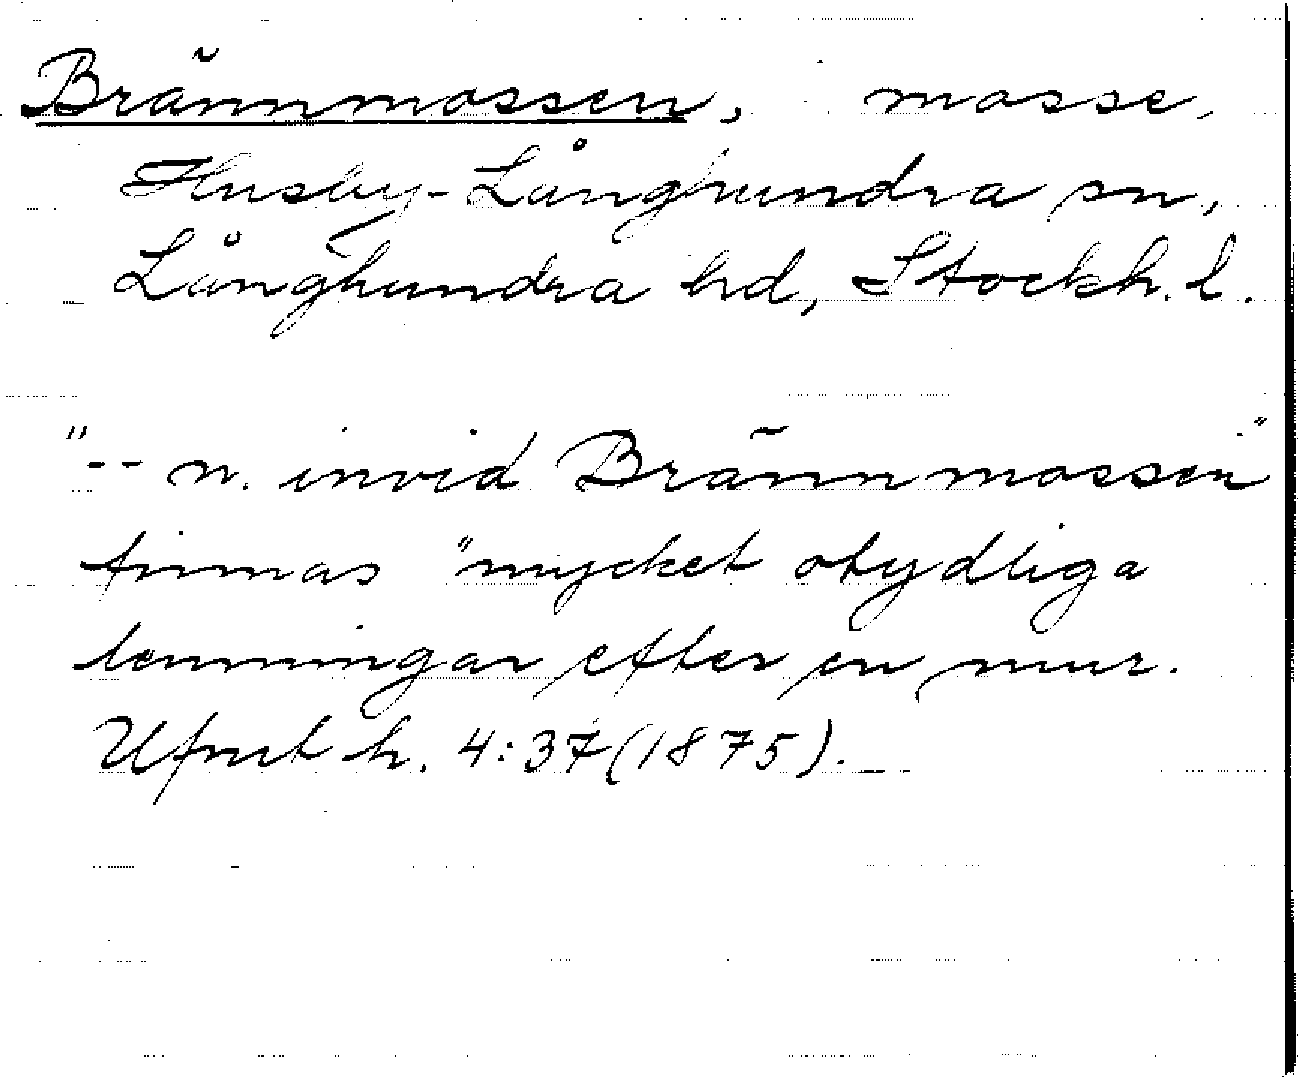 Brännmossen, mosse,
Husby-Långhundra sn,
Långhundra hd, Stockh. l.
"-- n. invid Brännmossen"
finnas "mycket otydliga
lemningar efter en mur.
Ufmt h. 4:37(1875).